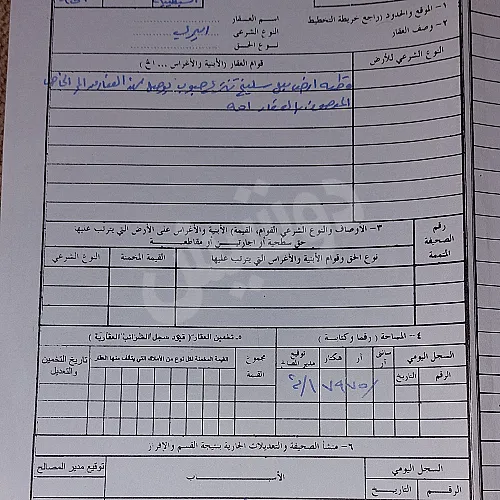 ١- الموقع والحدود (راجع خريطة التخطيط)
٢- وصف العقار
اسم العقار :
النوع الشرعي : اميري
نوع الحق :
النوع الشرعي للأرض
قوام العقار (الأبنية والأغراس ... الخ)
قطعة ارض بعل سليخ
العقار
رقم الصحيفة المتممة
٣- الاوصاف والنوع الشرعي القوام، القيمة) الأبنية والأغراس على الأرض التي يترتب عليها
حق سطحية أو اجارتين أو مقاطعة
نوع الحق وقوام الأبنية والأغراس التي يترتب عليها
القيمة المخمنة
النوع الشرعي
٤- المساحة ( رقما وكتابة )
٥. تخمين العقار ( قيود سجل الضرائب العقارية )
السجل اليومي
الرقم
التاريخ
سانتي آر
آر
هكتار
توقيع مدير المصالح
مجموع القيمة
القيمة المخمنة لكل نوع من الأملاك التي يتألف منها العقار
تاريخ التخمين والتعديل
٦- منشأ الصحيفة والتعديلات الجارية بنتيجة القسم والإفراز
السجل اليومي
الرقم
التاريخ
الأسباب
توقيع مدير المصالح